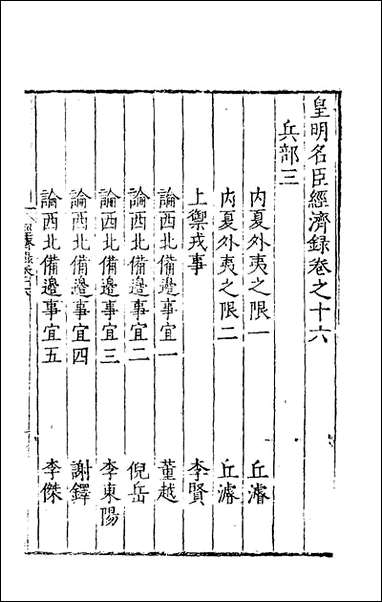 皇明名臣經濟錄卷之十六
兵部三
內夏外夷之限一 丘濬
內夏外夷之限二 丘濬
上禦戎事 李賢
論西北備邊事宜一 董越
論西北備邊事宜二 倪岳
論西北備邊事宜三 李東陽
論西北備邊事宜四 謝鐸
論西北備邊事宜五 李傑